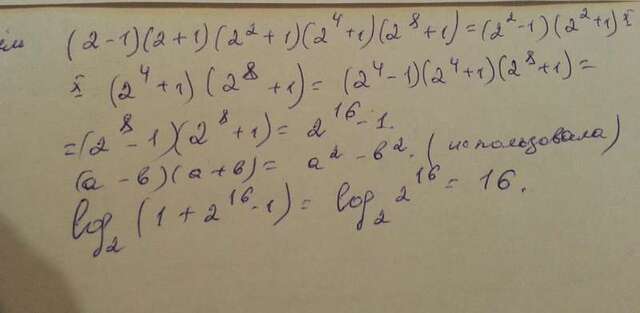 (2-1)(2+1)(2²+1)(2⁴+1)(2⁸+1)=(2²-1)(2²+1)x
x (2⁴+1)(2⁸+1)= (2⁴-1)(2⁴+1)(2⁸+1)=
=(2⁸-1)(2⁸+1)= 2¹⁶-1.
(a-в)(a+в)= a²-в². (использовала)
log₂(1+2¹⁶-1)= log₂2¹⁶= 16.